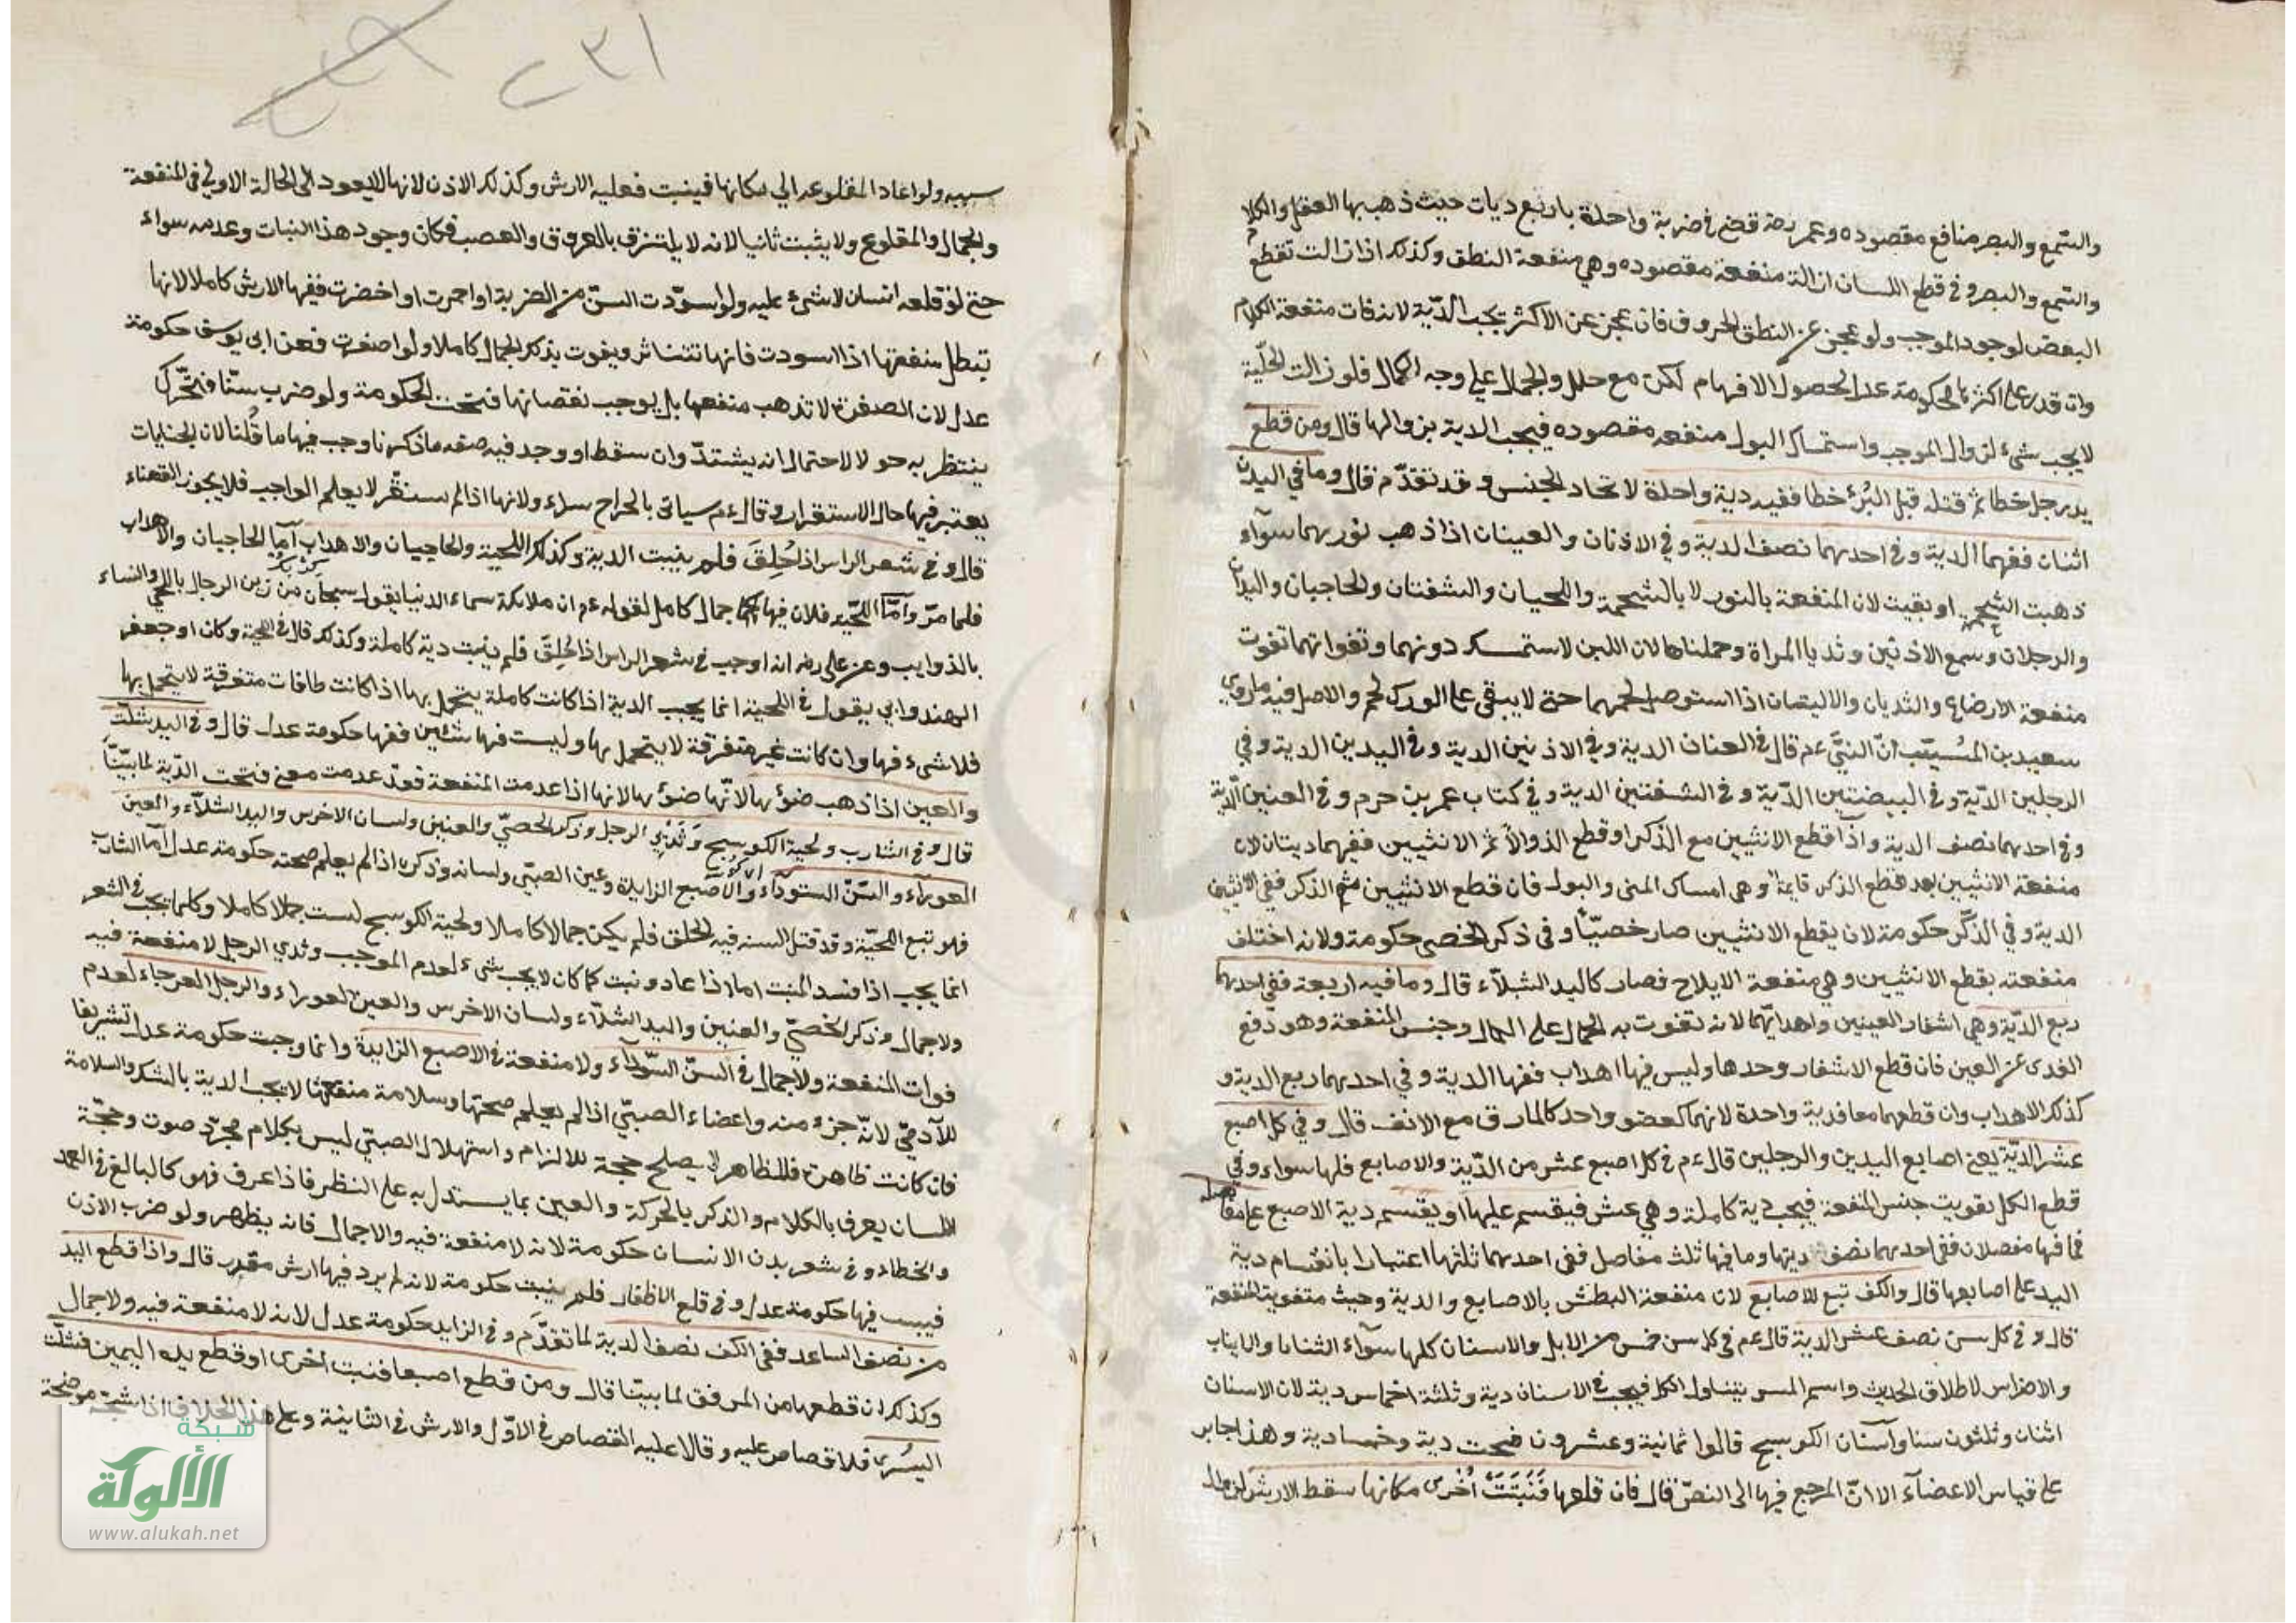 والسّمع والبصر منافع مقصوده وعمر رضه قضى في ضربة واحدة باربع ديات حيث ذهب بها العقل والكلام
والسّمع والبصر وفي قطع اللسان ازالة منفعة مقصوده وهي منفعة النطق وكذلك اذا زالت تقطع
البعض لوجود الموجب ولو عجز عن النطق الحروف فان عجز عن الاكثر يجب الدّية لانه فات منفعة الكلام
وان قدر على اكثرها فحكومة عدل لحصول الافهام لكن مع خلل والجمال على وجه الكمال فلو زالت
لا يجب شيء لزوال الموجب واستمساك البول منفعه مقصوده فيجب الدية بزوالها قال ومن قطع
يد رجل خطا ثم قتله قبل البُرْء خطا ففيه دية واحدة لاتحاد الجنس وقد تقدّم قال وما في البدن
اثنان ففيهما الدية وفي احدهما نصف الدية وفي الاذنان والعينان اذا ذهب نورهما سوآء
ذهبت الشحمة او بقيت لان المنفعة بالنور لا بالشحمة واللحيان والشفتان والحاجبان واليدان
والرجلان وسمع الاذنين وثديا المراة وحلمتاها لان اللبن لا يستمسك دونهما وتفواتهما تفوت
منفعة الارضاع والثديان والاليتان اذا استوصل لحمهما حتى لا يبقى على الورك لحم والاصل فيه ما روي
سعيد بن المسُيّب انّ النبيّ عم قال في العينان الدية وفي الاذنين الدية وفي اليدين الدية وفي
الرجلين الدّية وفي البيضتين الدّية وفي الشفتين الدية وفي كتاب عمر بن حزم وفي العينين الدّية
وفي احدهما نصف الدية واذا قطع الانثيين مع الذّكر او قطع الذكر اولا ثم الانثيين ففيهما ديتان لان
منفعة الانثيين بعد قطع الذكر قايمة وهي امساك المنى والبول فان قطع الانثيين ثم الذكر ففي الانثيين
الدية وفي الذّكر حكومة لان بقطع الانثيين صار خصيّاً وفي ذكر الخصى حكومة ولانه اختلف
منفعته بقطع الانثيين وهي منفعة الايلاج فصار كاليد الشلّاء قال وما فيه اربعة ففي احدهما
ربع الدّية وهي اشفار العينين واهدابهما لانه تفوت به الجمال على الكمال وجنس المنفعة وهو دفع
القذى عن العين فان قطع الاشفار وحدها وليس فيها اهداب ففيها الدية وفي احدهما ربع الدية و
كذلك الاهداب وان قطعهما معا فدية واحدة لانهما كعضو واحد كالمارن مع الانف قال وفي كل اصبع
عشر الديّة يعني اصابع اليدين والرجلين قال عم في كل اصبع عشر من الدّية والاصابع فلها سواء وفي
قطع الكل تفويت جنس المنفعة فيجب دية كاملة وهي عشر فيقسم عليها او يقسم دية الاصبع على مفاصله
فما فيها مفصلان ففي احدهما نصف ديتها وما فيها ثلث مفاصل ففي احدهما ثلثها اعتبارا بانقسام دية
اليد على اصابعها قال والكف تبع للاصابع لان منفعة البطش بالاصابع والدية وجبت بتفويت المنفعة
قال وفي كل سن نصف عشر الدية قال عم في كل سن خمس من الابل والاسنان كلها سوآء الثنايا والانياب
والاضراس لاطلاق الحديث واسم السن يتناول الكل فيجب في الاسنان دية وثلثة اخماس دية لان الاسنان
اثنان وثلثون سنا واسنان الكوسج قالوا ثمانية وعشرون فيجب دية وخمسا دية وهذا جابر
على قياس الاعضآء الا انّ المرجع فيها الى النصّ قال فان قلعها فَنَبَتَتْ اُخْرى مكانها سقط الارش لزوال
سببه ولو اعاد المقلوعه الي مكانها فينبت فعليه الارش وكذلك الاذن لانها لا يعود الى الحالة الاولى في المنفعة
والجمال والمقلوع ولا يثبت ثانيا لانه لا يلتزق بالعروق والعصب فكان وجود هذا النبات وعدمه سواء
حتى لو قلعه انسان لا شيء عليه ولو اسودت السنّ من الضربة او احمرت او اخضرت ففيها الارش كاملا لانها
تبطل منفعتها اذا اسودت فانها تتناثر ويفوت بذلك الجمال كاملا ولو اصفرت فعن ابى يوسف حكومة
عدل لان الصفرة لا تذهب منفعها بل يوجب نقصانها فتجب الحكومة ولو ضرب سنّا فتحّرك
ينتظر به حولا لاحتمال انه يشتدّ وان سقط او وجد فيه صفه ما ذكرنا وجب فيها ما قُلنا لان الجنايات
يعتبر فيها حال الاستقرار وقال عم سياتى بالجراح سراء ولانها اذا لم ستقّر لا يعلم الواجب فلا يجوز القضاء
قال وفي شعر الراس اذا حُلِقَ فلم ينبت الدية وكذلك اللحية والحاجبان والاهداب آما الحاجبان والاهداب
فلما مرّ وآمّا اللحيه فلان فيها جمال كامل لقوله عم ان ملائكة سماء الدنيا يقول سبحان من زين الرجال باللحى والنساء
بالذوايب وعن على رضه انه اوجب في شعر الراس اذا حُلِقَ فلم ينبت دية كاملة وكذلك قال في اللحية وكان ابو جعفر
الهندواني يقول في اللحية انما يجب الدية اذا كانت كاملة يتجمل بها اذا كانت طاقات متفرقة لا يتجمل بها
فلا شيء فيها وان كانت غير متفرقة لا يتجمل بها وليست فيها شئين ففيها حكومة عدل قال وفي اليد شلّت
والعين اذا ذهب ضوئها لانّها ضوئها لانها اذا عدمت المنفعة فقد عدمت معنى فتجب الدّية لما بيّنّا
قال وفي الشارب ولحية الكوسج وَثَدْيَي الرجل وذكر الخصيّ والعنين ولسان الاخرس واليد الشلآء والعين
العورآء والسّنّ السودآء والاصبع الزايدة وعين الصبّى ولسانه وذكره اذا لم يعلم صحته حكومة عدل آما الشارب
فهو تبع اللحيّة وقد قتل السنه فيه الحلق فلم يكن جمالا كاملا ولحية الكوسج ليست جملا كاملا وكلما يجب في الشعر
انما يجب اذا فسد المنبت اما اذا عاد ونبت كما كان لا يجب شيء لعدم الموجب وثدي الرجل لا منفعة فيه
ولا جمال وذكر الخصيّ والعنين واليد الشلآء ولسان الاخرس والعين العوراء والرجل العرجاء لعدم
فوات المنفعة ولا جمال في السنّ السّودآء ولا منفعة في الاصبع الزايدة وانما وجبت حكومة عدل تشريفا
للآدميّ لانّه جزء منه واعضاء الصبيّ اذا لم يعلم صحتها وسلامة منفعتها لا يجب الدية بالشك والسلامة
فان كانت ظاهرة فالظاهر لا يصلح حجة للالزام واستهلال الصبّي ليس بكلام مجرّد صوت وحجّة
اللسان يعرف بالكلام والذكر بالحركة والعين بما يستدل به على النظر فاذا عرف فهو كالبالغ في العمد
والخطاء وفي شعر بدن الانسان حكومة لانه لا منفعة فيه والاجمال فانه يظهر ولو ضرب الاذن
فيبست فيها حكومة عدل وفي قلع الاظفار فلم ينبت حكومة لانه لم يرد فيها ارش مقدر قال واذا قطع اليد
من نصف الساعد ففي الكف نصف الدية لما تقدَّم وفي الزايد حكومة عدل لانه لا منفعة فيه ولا جمال
وكذلك ان قطعها من المرفق لما بيّنّا قال ومن قطع اصبعا فنبت اخرى او قطع يده اليمين فشلّت
اليسُرى فلا قصاص عليه وقالا عليه القصاص في الاوّل والارش في الثانية وعلى هذا الخلاف اذا شجّه موضحة
شبكة
الألوكة
www.alukah.net